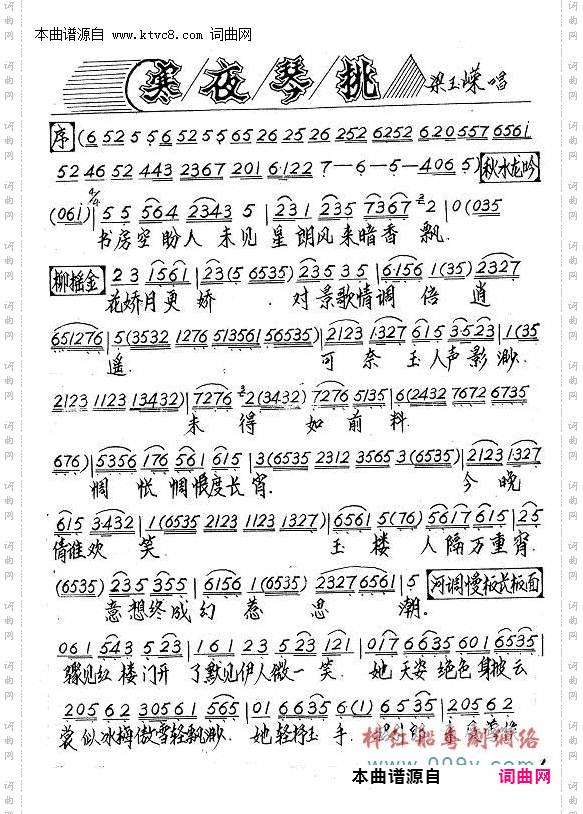 本曲谱源自 www.ktvc8.com 词曲网
寒夜琴挑 梁玉嵘唱
序 (6 52 5 5 6 52 5 5 65 26 25 26 252 6252 620557 6561
52 46 52 443 2367 201 6122 7-6-5-406 5) 秋水龙吟
(061)| 5 5 564 2343 5 | 231 235 7367 2 | 0 (035
书房空盼人 未见星朗风来暗香飘.
柳摇金 2 3 1561 | 23 (5 6535) 235 3 5 | 6156 1 (35) 2327
花娇月更娇. 对景歌情调倍逍
651276 | 5 (3532 1276 513561 56535) | 2123 1327 615 3·523 | 1 (35
遥. 可奈玉人声影渺.
2123 1123 13432) | 7276 2 (3432) 7276 5135 | 6 (2432 7672 6735
未得如前料
676) | 5356 176 561 615 | 3 (6535 2312 3565 3 (6535) | 2123 1327
惆怅惆怅度长宵. 今晚
615 3432 | 1 (6535 2123 1123 1327) | 6561 5 (76) 5617 615 | 25
倩谁欢笑. 玉楼人隔万重霄.
(6535) 235 355 | 6156 1 (6535) 2327 6561 | 5 河调慢板长板面
意想终成幻惹思潮.
061 543 5 23 | 161 23 5 23 121 | 017 6635 601 6535 |
骤见红楼门开了默见伊人微一笑. 她天姿绝色身披云
205 62 305 3561 565 | 01 6635 6 (1) 6 535 | 205 62
裳似冰梅傲雪轻飘渺. 她轻抒玉手.
梓红船粤剧网络
www.009y.com
本曲谱源自 词曲网